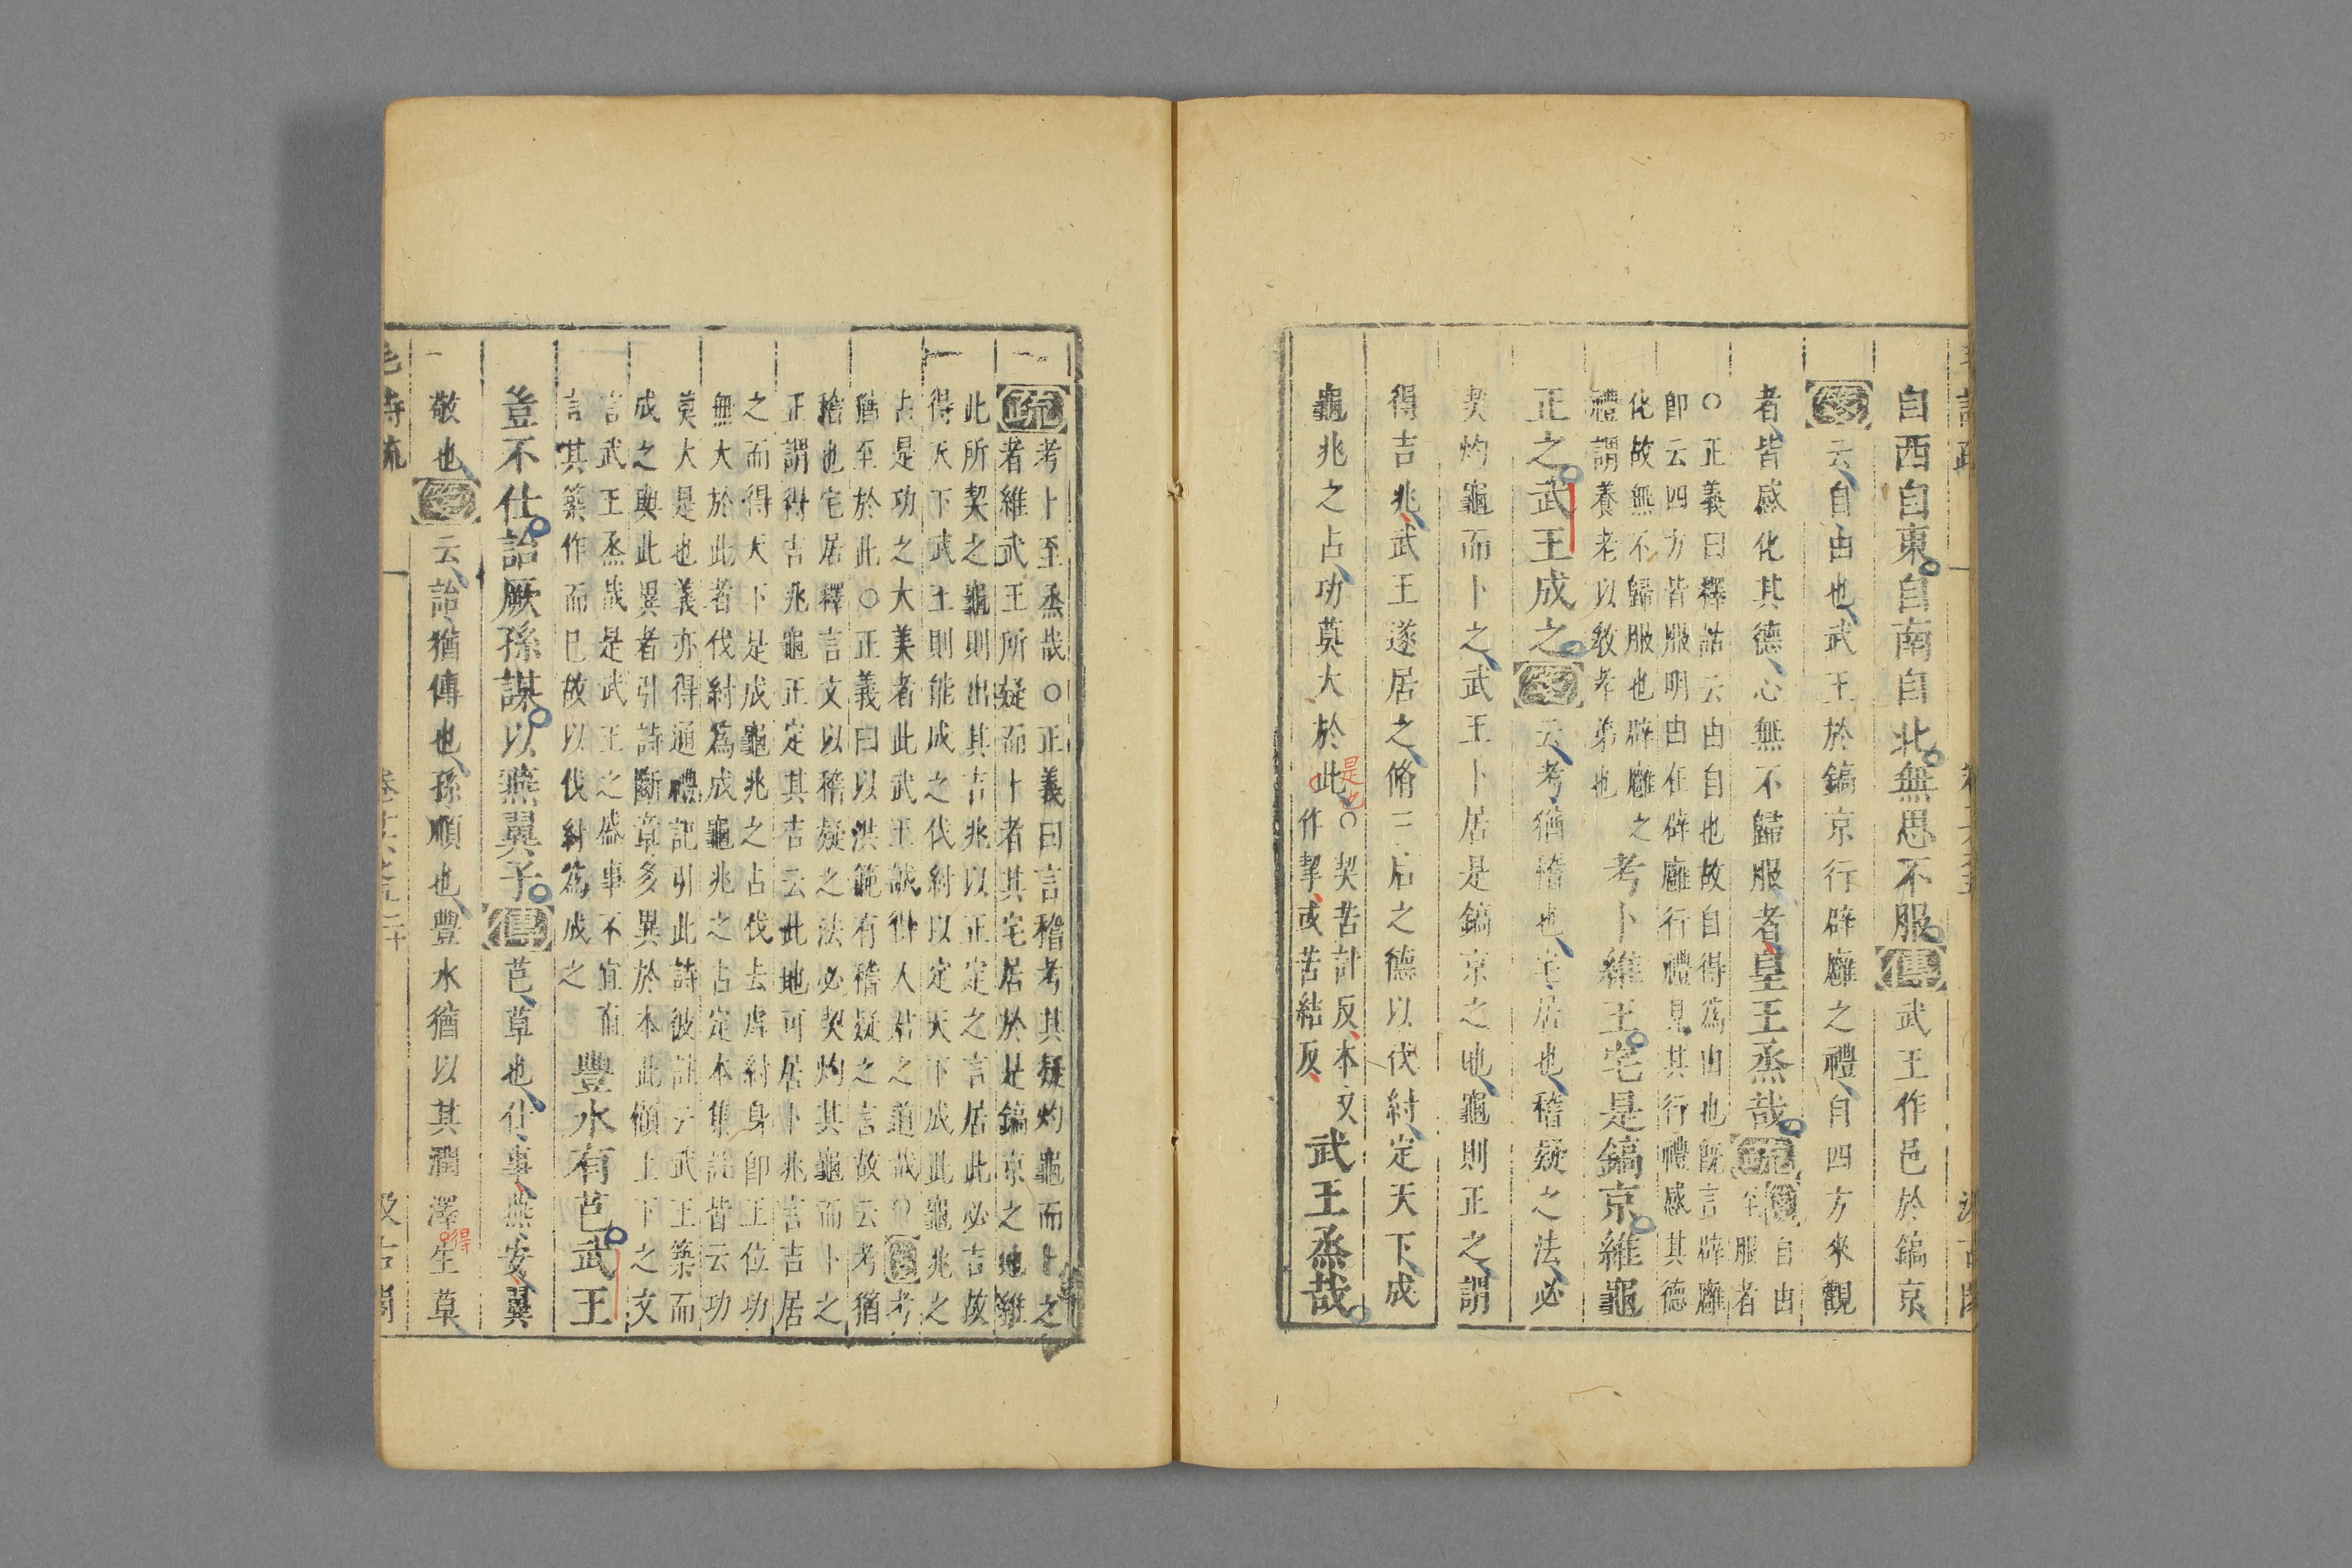 自西自東自南自北無思不服傳武王作邑於鎬京
箋云自由也武王於鎬京行辟廱之禮自四方來觀
者皆感化其德心無不歸服者皇王烝哉疏箋自由
至服者
○正義曰釋詁云由自也故自得爲由也旣言辟廱
卽云四方皆服明由在辟廱行禮見其行禮感其德
化故無不歸服也辟廱之
禮謂養老以敎孝弟也
考卜維王宅是鎬京維龜
正之武王成之箋云考猶稽也宅居也稽疑之法必
契灼龜而卜之武王卜居是鎬京之地龜則正之謂
得吉兆武王遂居之脩三后之德以伐紂定天下成
龜兆之占功莫大於此
是也
○契苦計反本又
作挈或苦結反
武王烝哉
疏考卜至烝哉○正義曰言稽考其疑灼龜而卜之
者維武王所疑而卜者其宅居於是鎬京之地維
此所契之龜則出其吉兆以正定之言居此必吉故
得天下武王則能成之伐紂以定天下成此龜兆之
占是功之大美者此武王誠得人君之道哉○箋考
猶至於此○正義曰以洪範有稽疑之言故云考猶
稽也宅居釋言文以稽疑之法必契灼其龜而卜之
正謂得吉兆龜正定其吉云此地可居卜兆言吉居
之而得天下是成龜兆之占伐去虐紂身卽王位功
無大於此者伐紂爲成龜兆之占定本集註皆云功
莫大是也義亦得通禮記引此詩彼註云武王築而
成之與此異者引詩斷章多異於本此傾上下之文
言武王烝哉是武王之盛事不宜直
言其築作而已故以伐紂爲成之
豐水有芑武王
豈不仕詒厥孫謀以燕翼子傳芑草也仕事燕安翼
敬也箋云詒猶傳也孫順也豐水猶以其潤澤生草
得
毛詩疏